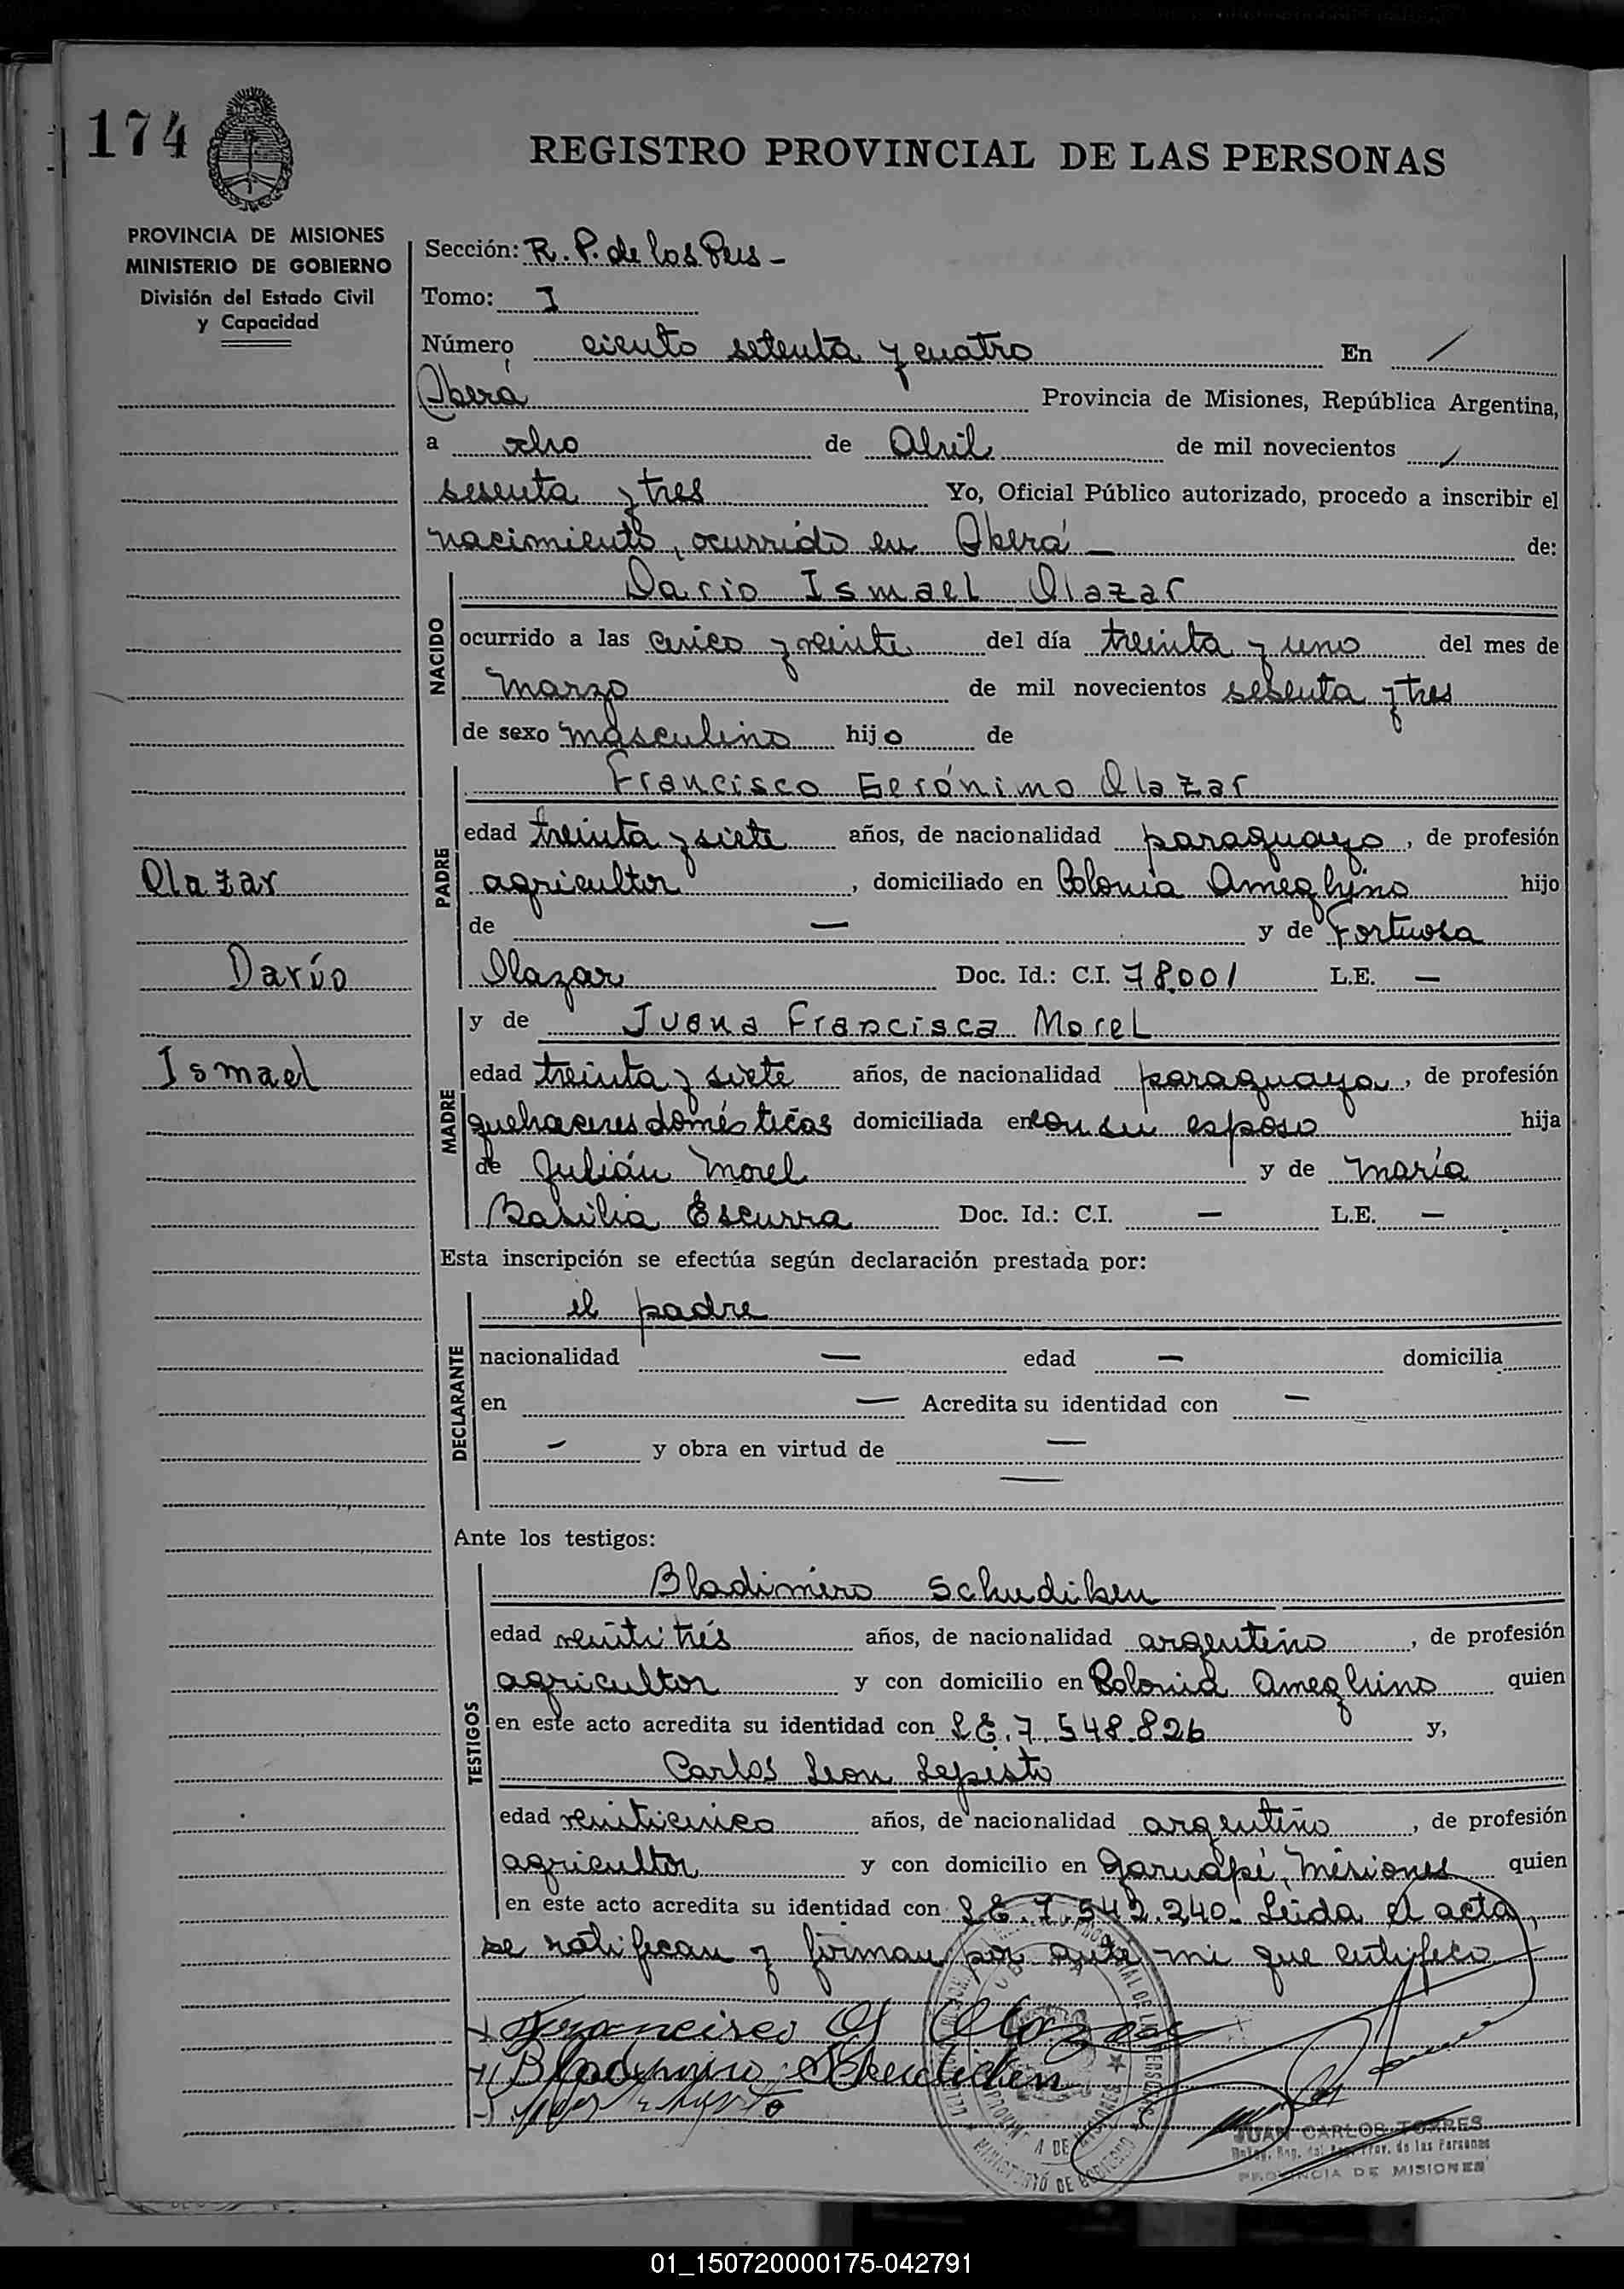 174
REGISTRO PROVINCIAL DE LAS PERSONAS
PROVINCIA DE MISIONES
MINISTERIO DE GOBIERNO
División del Estado Civil
y Capacidad
Sección: R. P. de las Pers -
Tomo: I
Número ciento setenta y cuatro En /
Oberá Provincia de Misiones, República Argentina,
a ocho de Abril de mil novecientos /
sesenta y tres Yo, Oficial Público autorizado, procedo a inscribir el
nacimiento, ocurrido en Oberá — de:
NACIDO
Dario Ismael Olazar
ocurrido a las cinco y veinte del día treinta y uno del mes de
marzo de mil novecientos sesenta y tres
de sexo masculino hijo de
PADRE
Francisco Gerónimo Olazar
edad treinta y siete años, de nacionalidad paraguayo, de profesión
agricultor, domiciliado en Colonia Ameghino hijo
de — y de Fortuosa
Olazar Doc. Id.: C.I. 78.001 L.E. —
Olazar
Darío
Ismael
MADRE
y de Juana Francisca Morel
edad treinta y siete años, de nacionalidad paraguaya, de profesión
quehaceres domésticos domiciliada en con su esposo hija
de Julián Morel y de María
Basilia Escurra Doc. Id.: C.I. — L.E. —
Esta inscripción se efectúa según declaración prestada por:
DECLARANTE
el padre
nacionalidad — edad — domicilia
en — Acredita su identidad con —
— y obra en virtud de —
—
Ante los testigos:
TESTIGOS
Bladimiro Schudiken
edad veintitrés años, de nacionalidad argentino, de profesión
agricultor y con domicilio en Colonia Ameghino quien
en este acto acredita su identidad con L.E. 7.548.826 y,
Carlos Leon Lepisto
edad veinticinco años, de nacionalidad argentino, de profesión
agricultor y con domicilio en Garuapé, Misiones quien
en este acto acredita su identidad con L.E. 7.542.240. Leida el acta,
se ratifican y firman por ante mi que certifico
Francisco G Olazar
Bladimiro
JUAN CARLOS TORRES
Prov. de las Personas
PROVINCIA DE MISIONES
MINISTERIO DE GOBIERNO
01_150720000175-042791